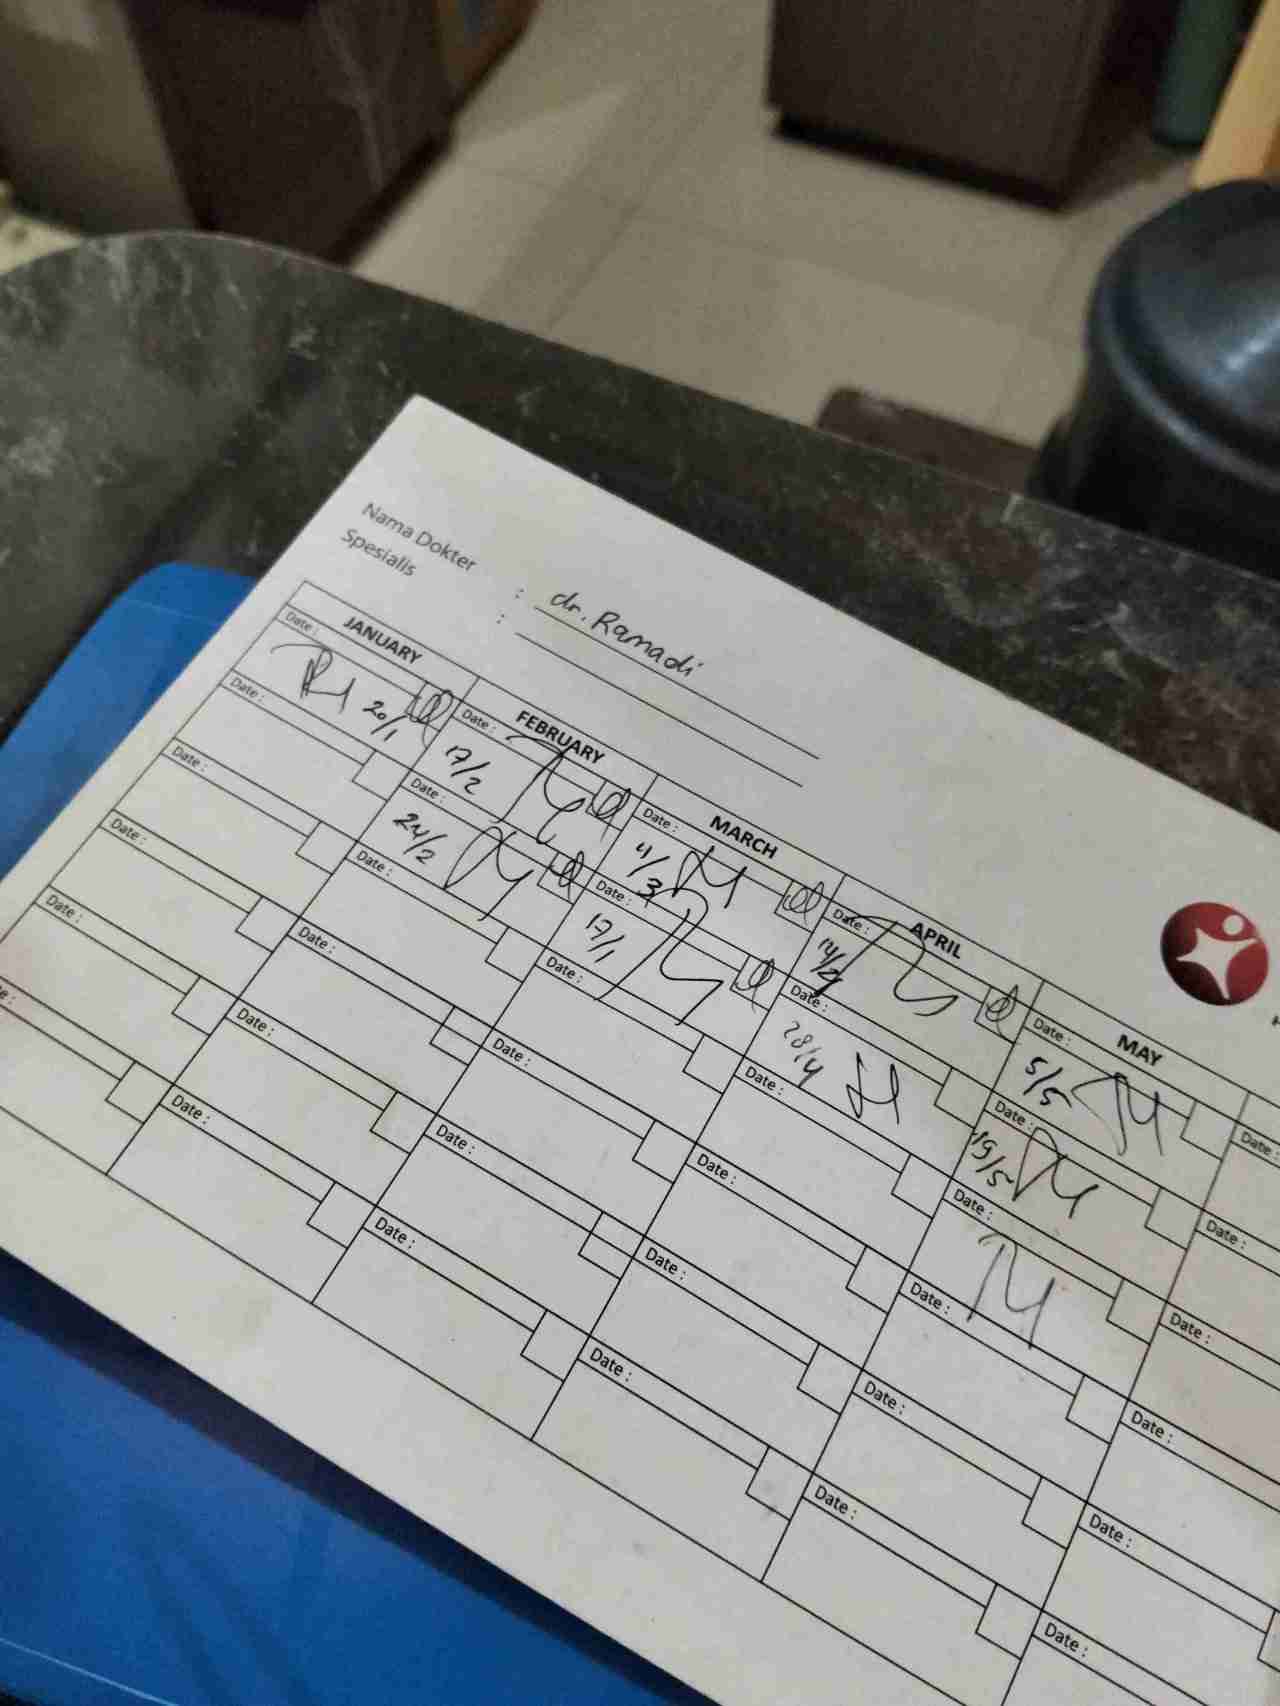 Nama Dokter : dr. Ramadi
Spesialis :
JANUARY FEBRUARY MARCH APRIL MAY
Date : Date : Date : Date : Date : Date :
20/1 17/2 4/3 14/4 5/5
Date : Date : Date : Date : Date : Date :
24/2 17/1 28/4 19/5
Date : Date : Date : Date : Date : Date :
Date : Date : Date : Date : Date : Date :
Date : Date : Date : Date : Date : Date :
Date : Date : Date : Date : Date :